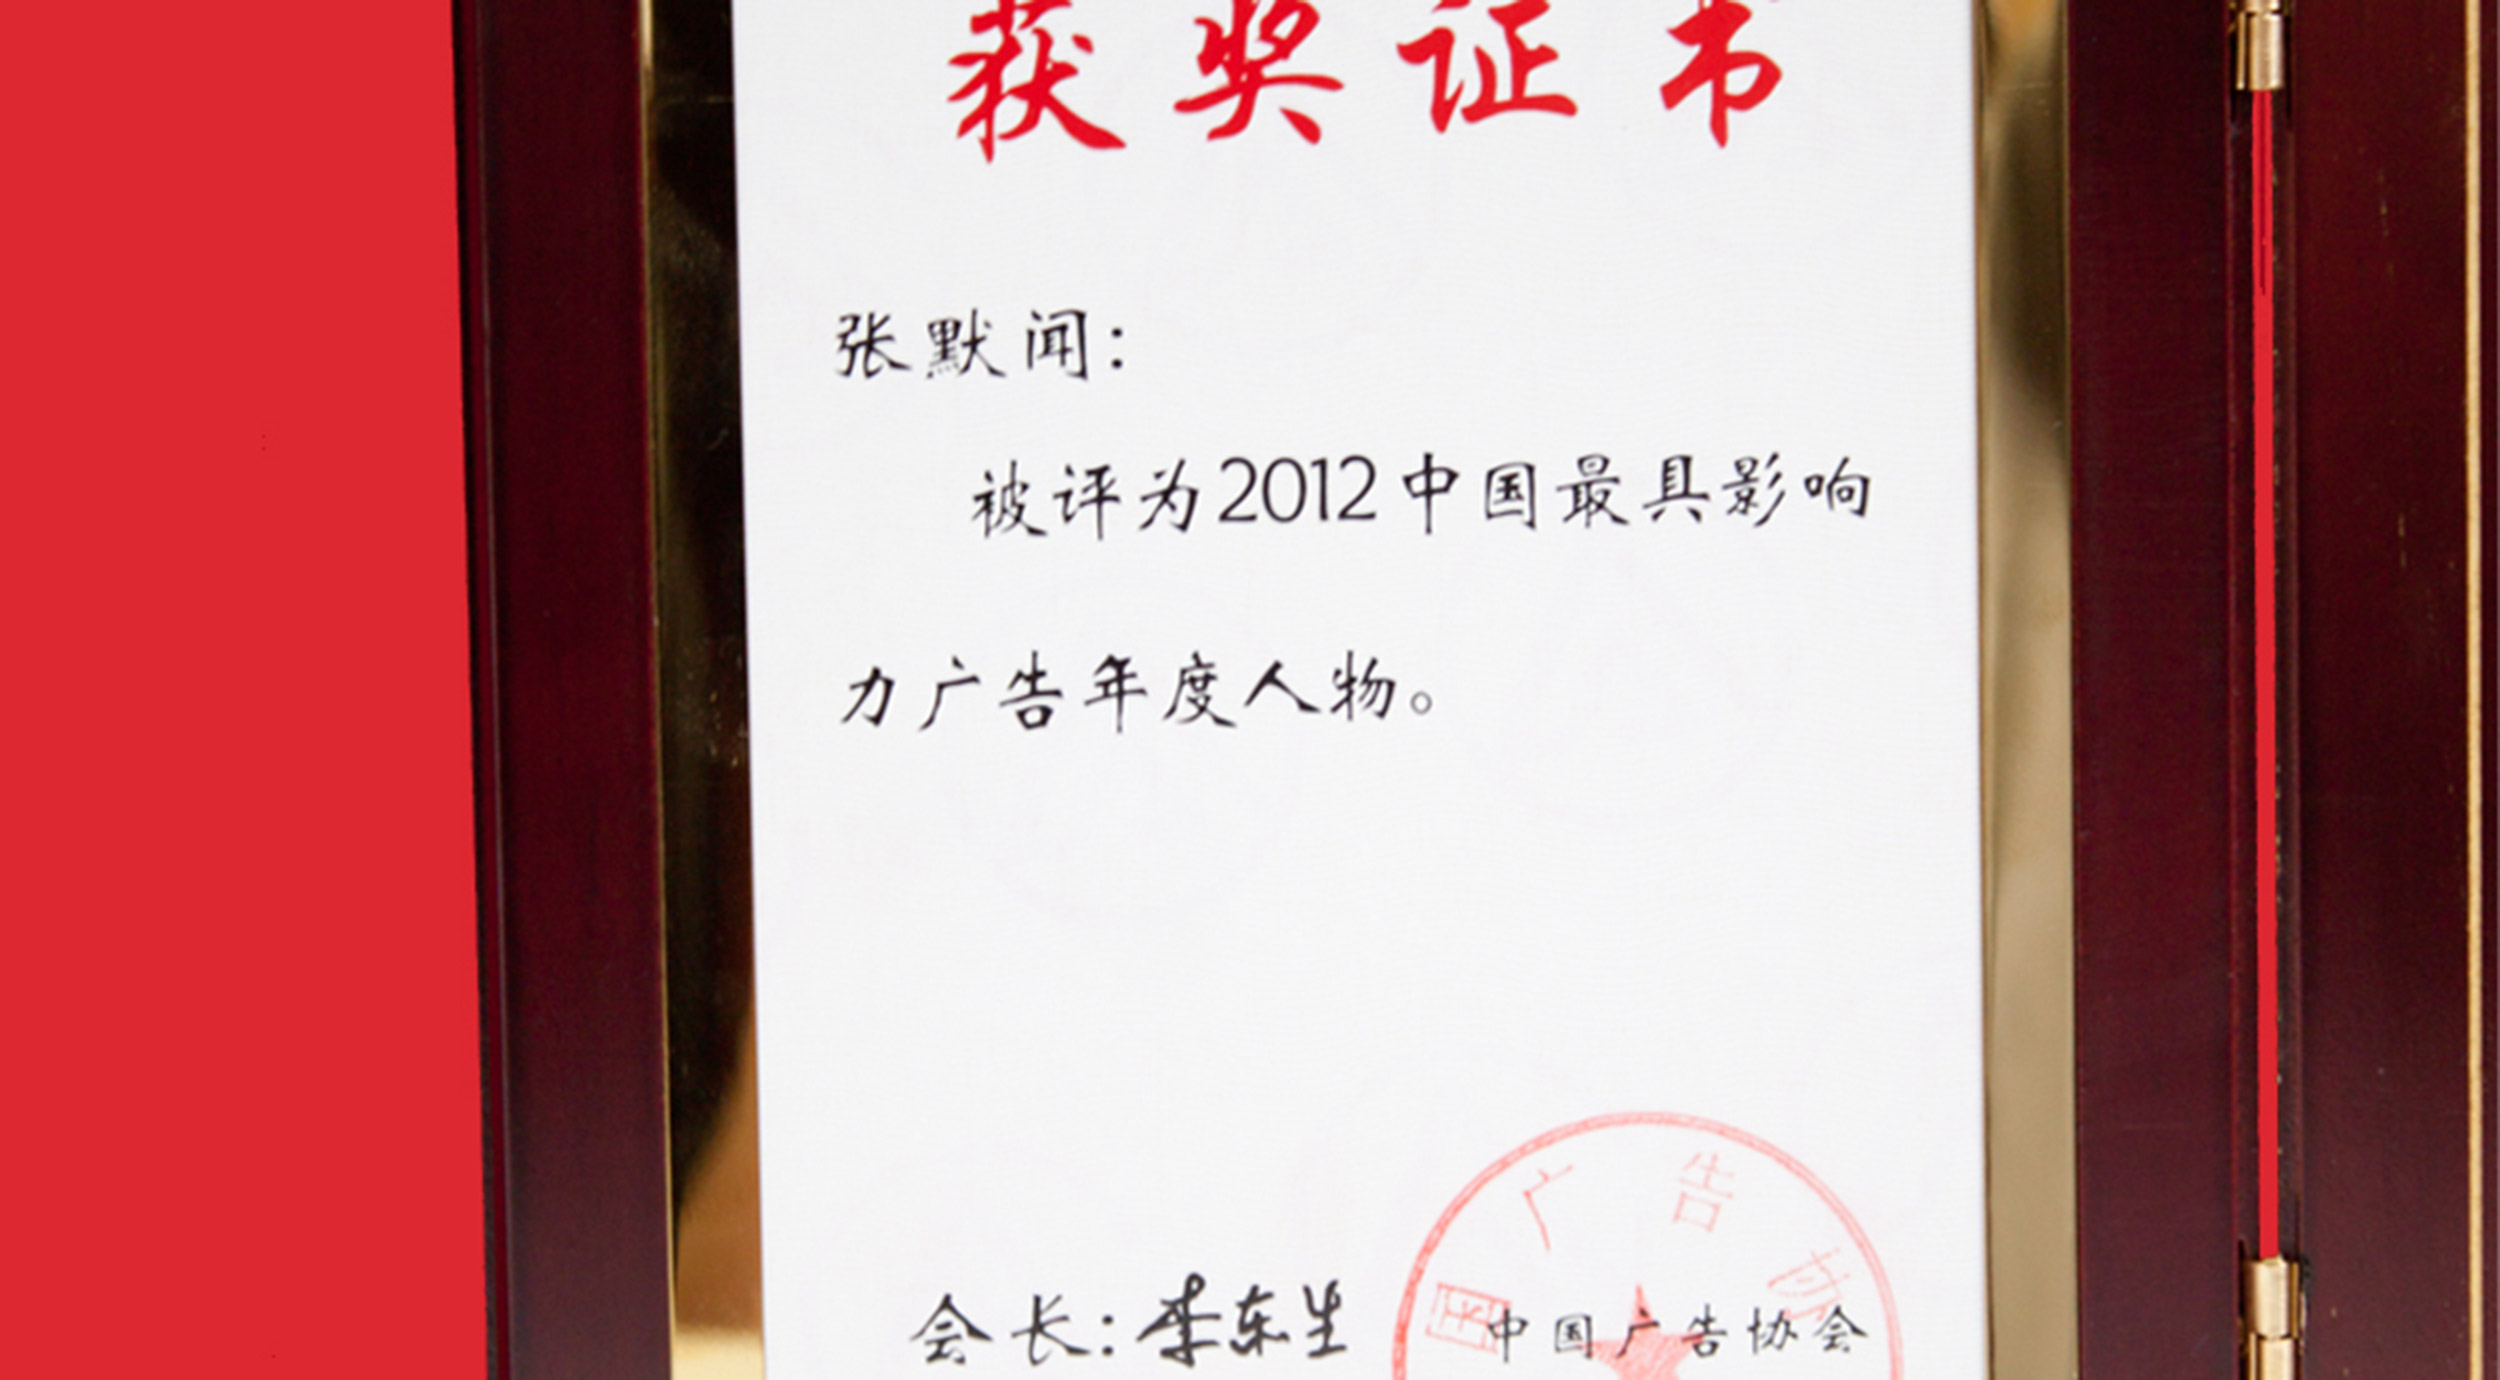 获奖证书
张默闻:
被评为2012中国最具影响
力广告年度人物。
国广告协
会长:李东生 中国广告协会